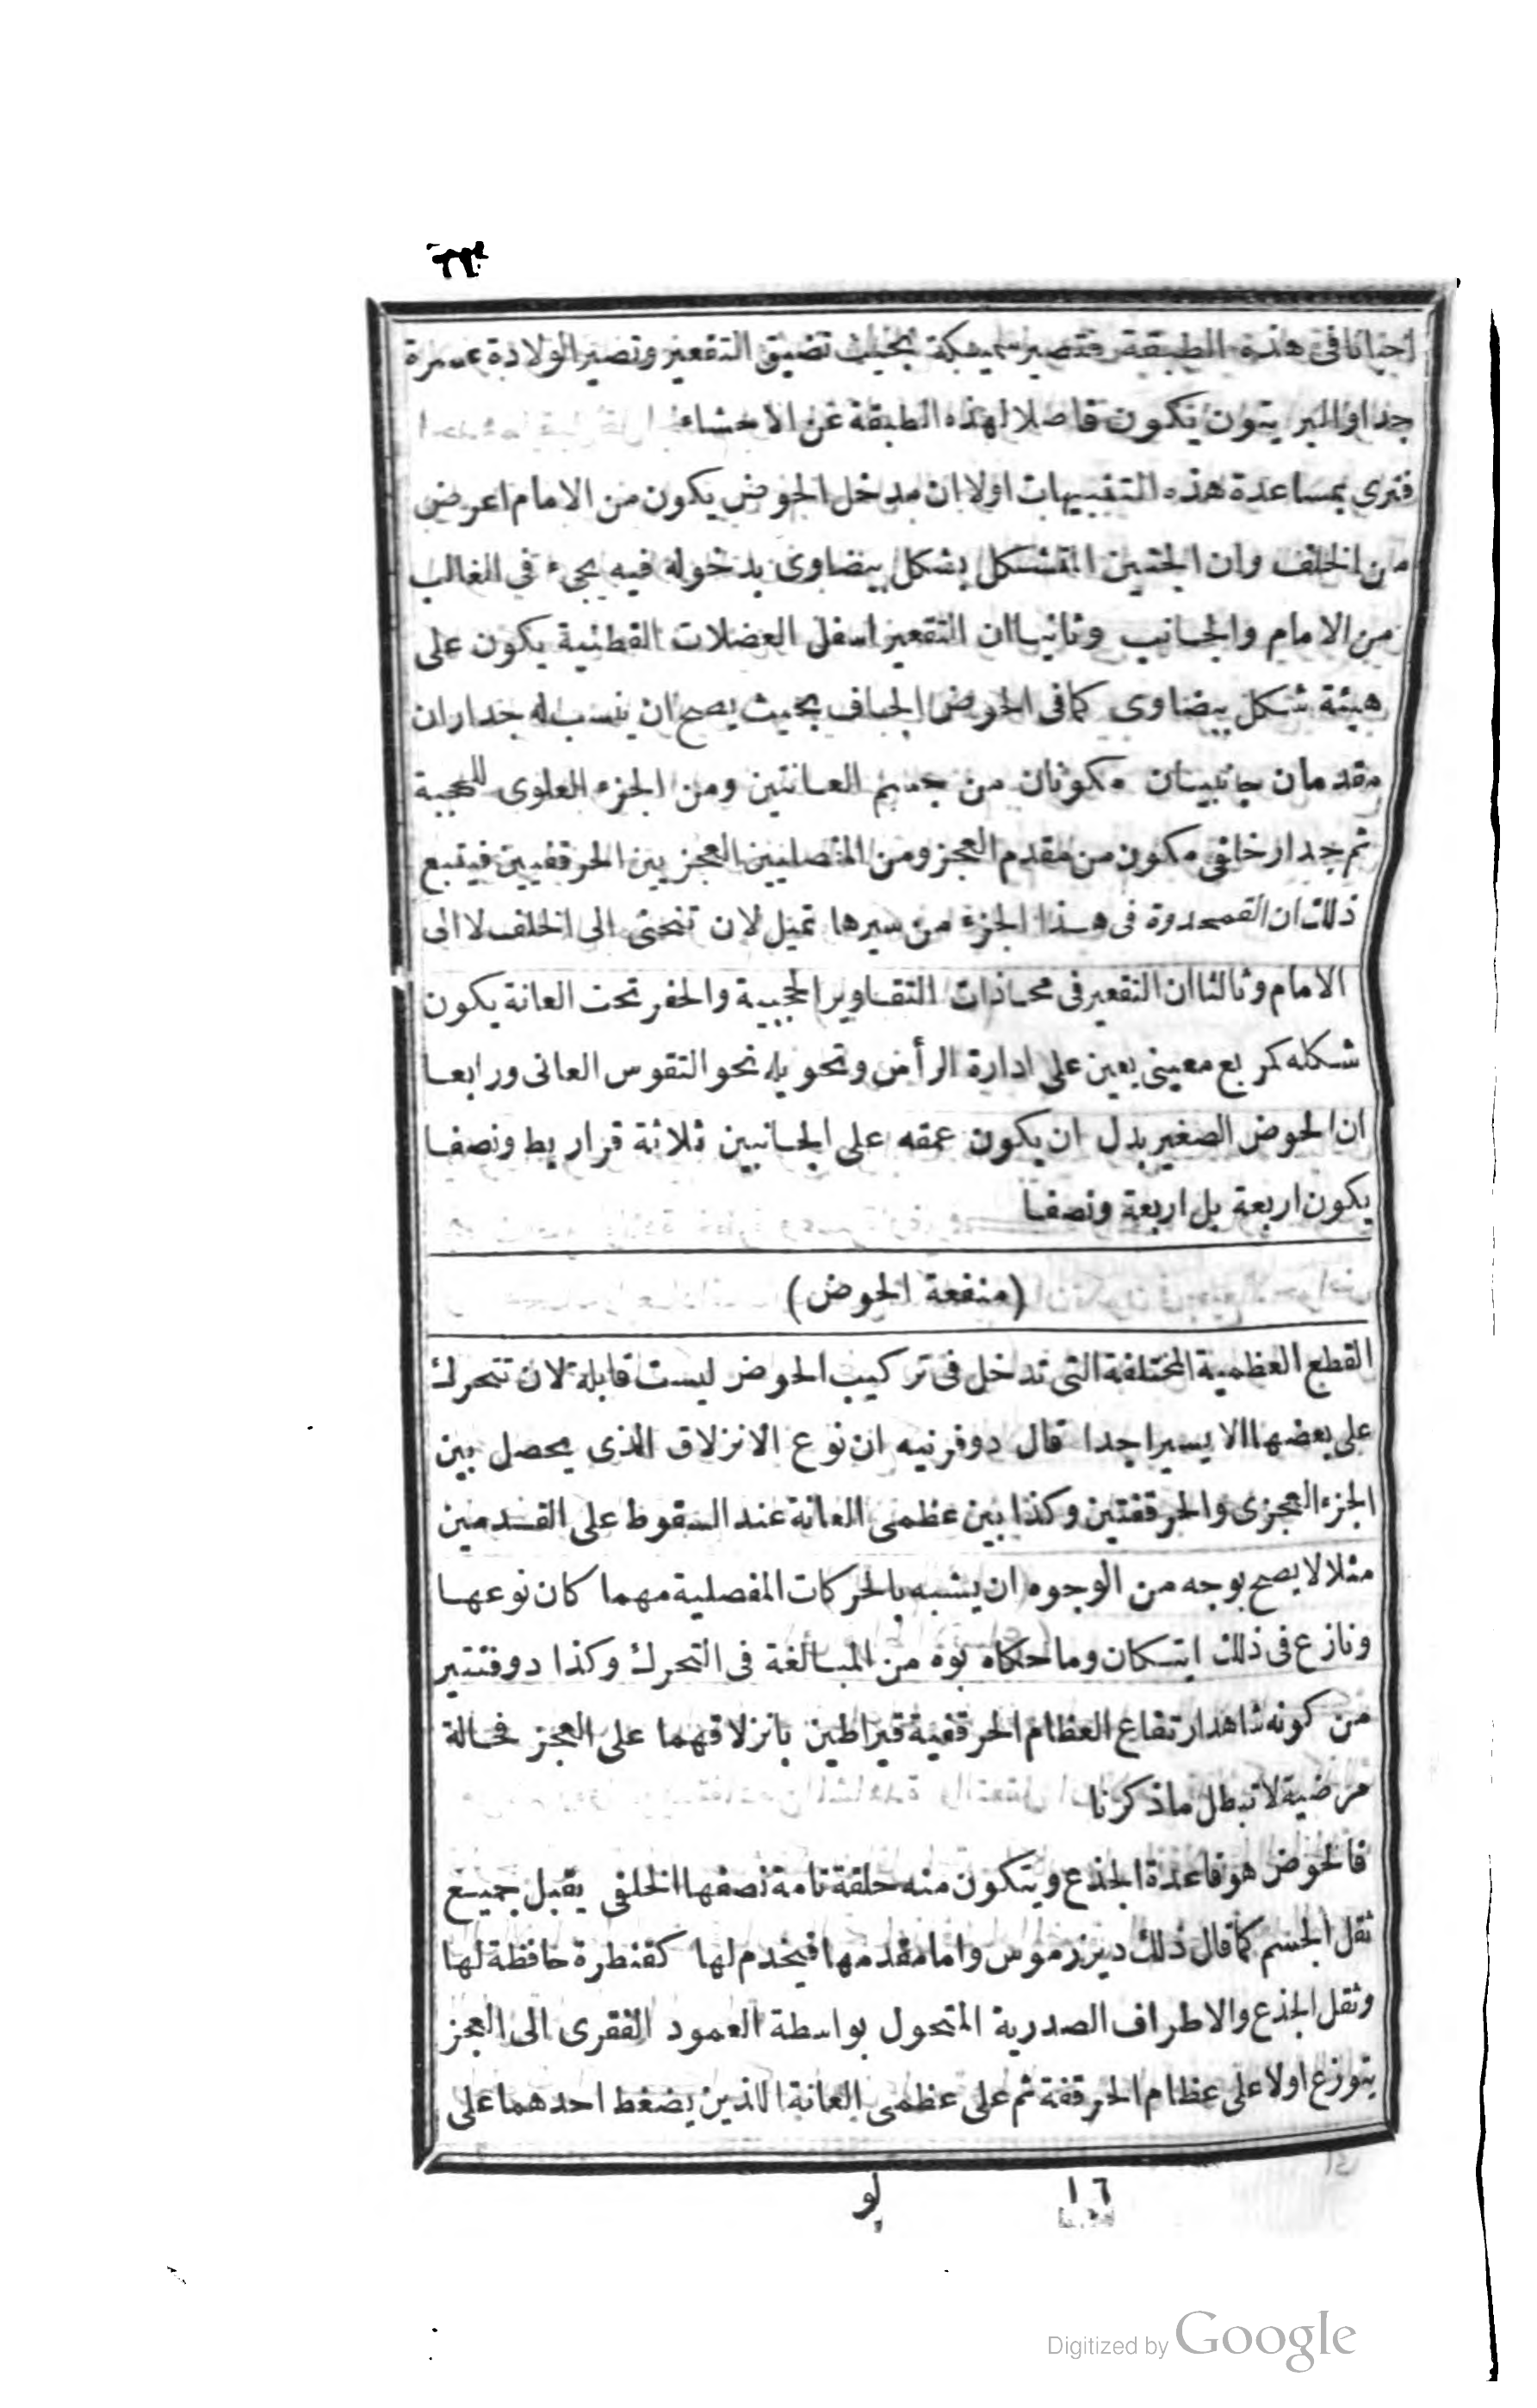 احيانا فى هذه الطبقة فتصير سميكة بحيث تضيق التقعير وتصير الولادة عسرة
جدا والبريتون يكون فاصلا لهذه الطبقة عن الاحشاء
فترى بمساعدة هذه التنبيهات اولا ان مدخل الحوض يكون من الامام اعرض
من الخلف وان الجنين المتشكل بشكل بيضاوى بدخوله فيه يجىء فى الغالب
من الامام والجانب وثانيا ان التقعير اسفل العضلات القطنية يكون على
هيئة شكل بيضاوى كما فى الحوض الجاف بحيث يصح ان ينسب له جداران
مقدمان جانبيان مكونان من جسم العانتين ومن الجزء العلوى للحجبة
ثم جدار خلفى مكون من مقدم العجز ومن المتصليين العجز بين الحرقفيين فيتبع
ذلك ان القمحدوة فى هذا الجزء من سيرها تميل لان تنحنى الى الخلف لا الى
الامام وثالثا ان التقعير فى محاذات التقاوير الحجبية والحفر تحت العانة يكون
شكله كمربع معينى يعين على ادارة الرأس وتحويله نحو التقوس العانى ورابعا
ان الحوض الصغير بدل ان يكون عمقه على الجانبين ثلاثة قراريط ونصفا
يكون اربعة بل اربعة ونصفا
(منفعة الحوض)
القطع العظمية المختلفة التى تدخل فى تركيب الحوض ليست قابلة لان تتحرك
على بعضها الا يسيرا جدا قال دوفرنيه ان نوع الانزلاق الذى يحصل بين
الجزء العجزى والحرقفتين وكذا بين عظمى العانة عند السقوط على القدمين
مثلا لا يصح بوجه من الوجوه ان يشبه بالحركات المفصلية مهما كان نوعها
ونازع فى ذلك ايتكان وما حكاه بوه من المبالغة فى التحرك وكذا دوفنتير
من كونه شاهد ارتفاع العظام الحرقفية قيراطين بانزلاقهما على العجز فحالة
مرضية لا تبطل ما ذكرنا
فالحوض هو قاعدة الجذع ويتكون منه حلقة تامة نصفها الخلفى يقبل جميع
ثقل الجسم كما قال ذلك ديزرموس واما مقدمها فيخدم لها كقنطرة حافظة لها
وثقل الجذع والاطراف الصدرية المتحول بواسطة العمود الفقرى الى العجز
يتوزع اولا على عظام الحرقفة ثم على عظمى العانة الذين يضغط احدهما على
١٦ لو
Digitized by Google